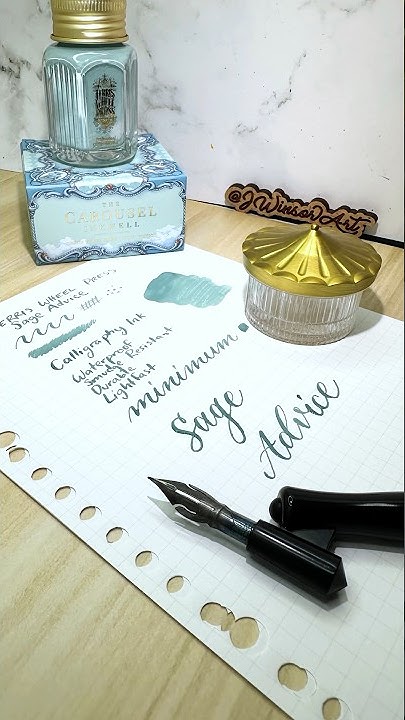 FERRIS WHEEL PRESS
THE
CAROUSEL
INKWELL
@JWinsorArt
FERRIS WHEEL PRESS
Sage Advice
Calligraphy Ink
Waterproof
Smudge Resistant
Durable
Lightfast
minimum
Sage
Advice